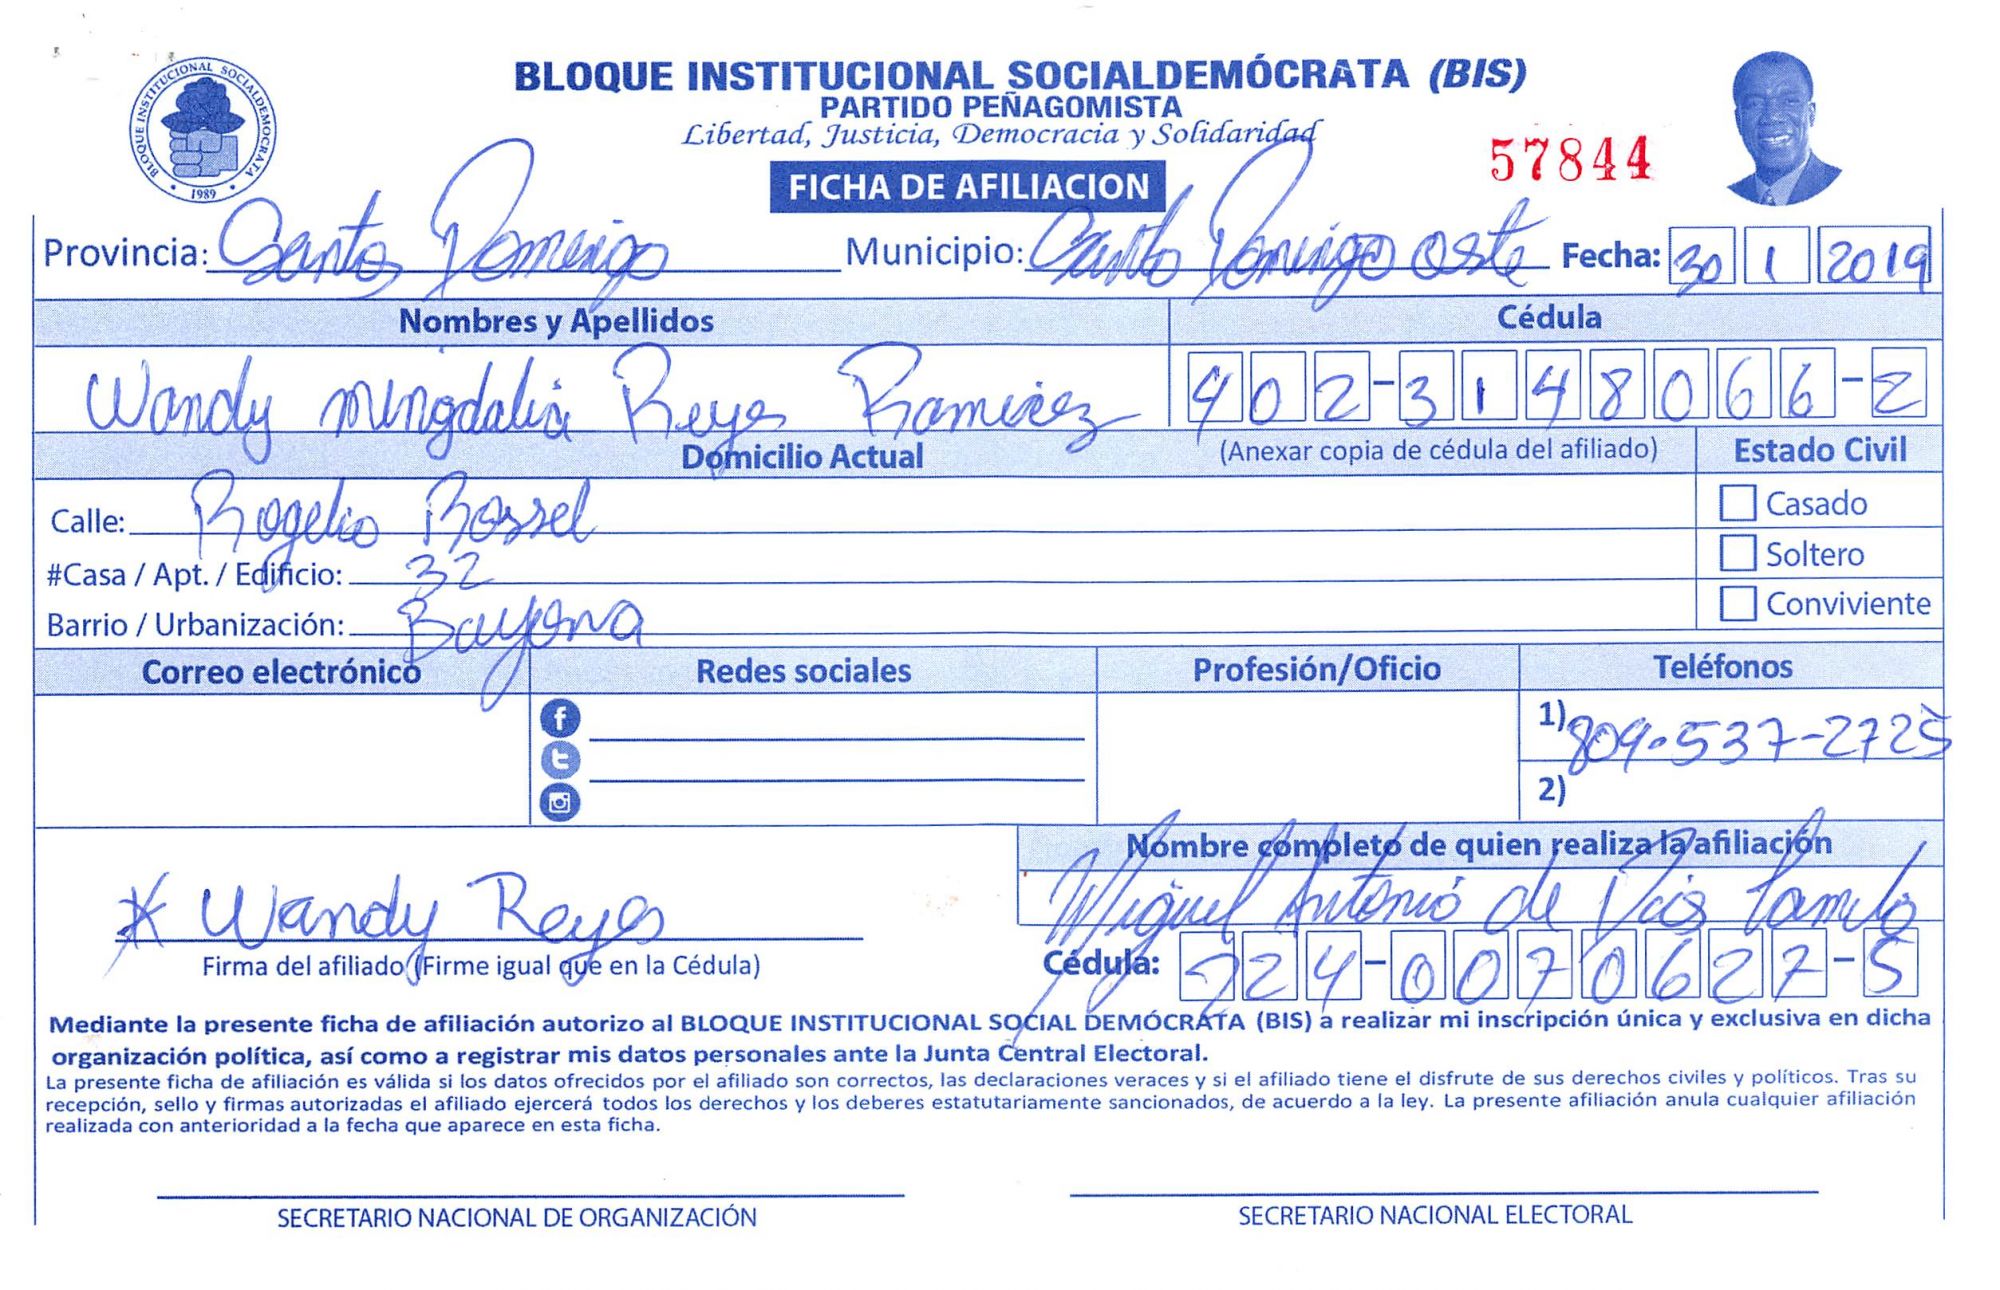 BLOQUE INSTITUCIONAL SOCIALDEMÓCRATA (BIS)
PARTIDO PEÑAGOMISTA
Libertad, Justicia, Democracia y Solidaridad
BLOQUE INSTITUCIONAL SOCIALDEMOCRATA
1989
57844
FICHA DE AFILIACION
Provincia: Santo Domingo Municipio: Santo Domingo oste Fecha: 30 1 2019
Nombres y Apellidos Cédula
Wandy Mingdalia Reyes Ramirez 402-3148066-2
Domicilio Actual (Anexar copia de cédula del afiliado) Estado Civil
Calle: Rogelio Rossel Casado
#Casa / Apt. / Edificio: 32 Soltero
Barrio / Urbanización: Bayona Conviviente
Correo electrónico Redes sociales Profesión/Oficio Teléfonos
1) 809-537-2725
2)
Nombre completo de quien realiza la afiliación
* Wandy Reyes Miguel Antonio de
Firma del afiliado (Firme igual que en la Cédula) Cédula: 224-0070627-5
Mediante la presente ficha de afiliación autorizo al BLOQUE INSTITUCIONAL SOCIAL DEMÓCRATA (BIS) a realizar mi inscripción única y exclusiva en dicha
organización política, así como a registrar mis datos personales ante la Junta Central Electoral.
La presente ficha de afiliación es válida si los datos ofrecidos por el afiliado son correctos, las declaraciones veraces y si el afiliado tiene el disfrute de sus derechos civiles y políticos. Tras su
recepción, sello y firmas autorizadas el afiliado ejercerá todos los derechos y los deberes estatutariamente sancionados, de acuerdo a la ley. La presente afiliación anula cualquier afiliación
realizada con anterioridad a la fecha que aparece en esta ficha.
SECRETARIO NACIONAL DE ORGANIZACIÓN SECRETARIO NACIONAL ELECTORAL